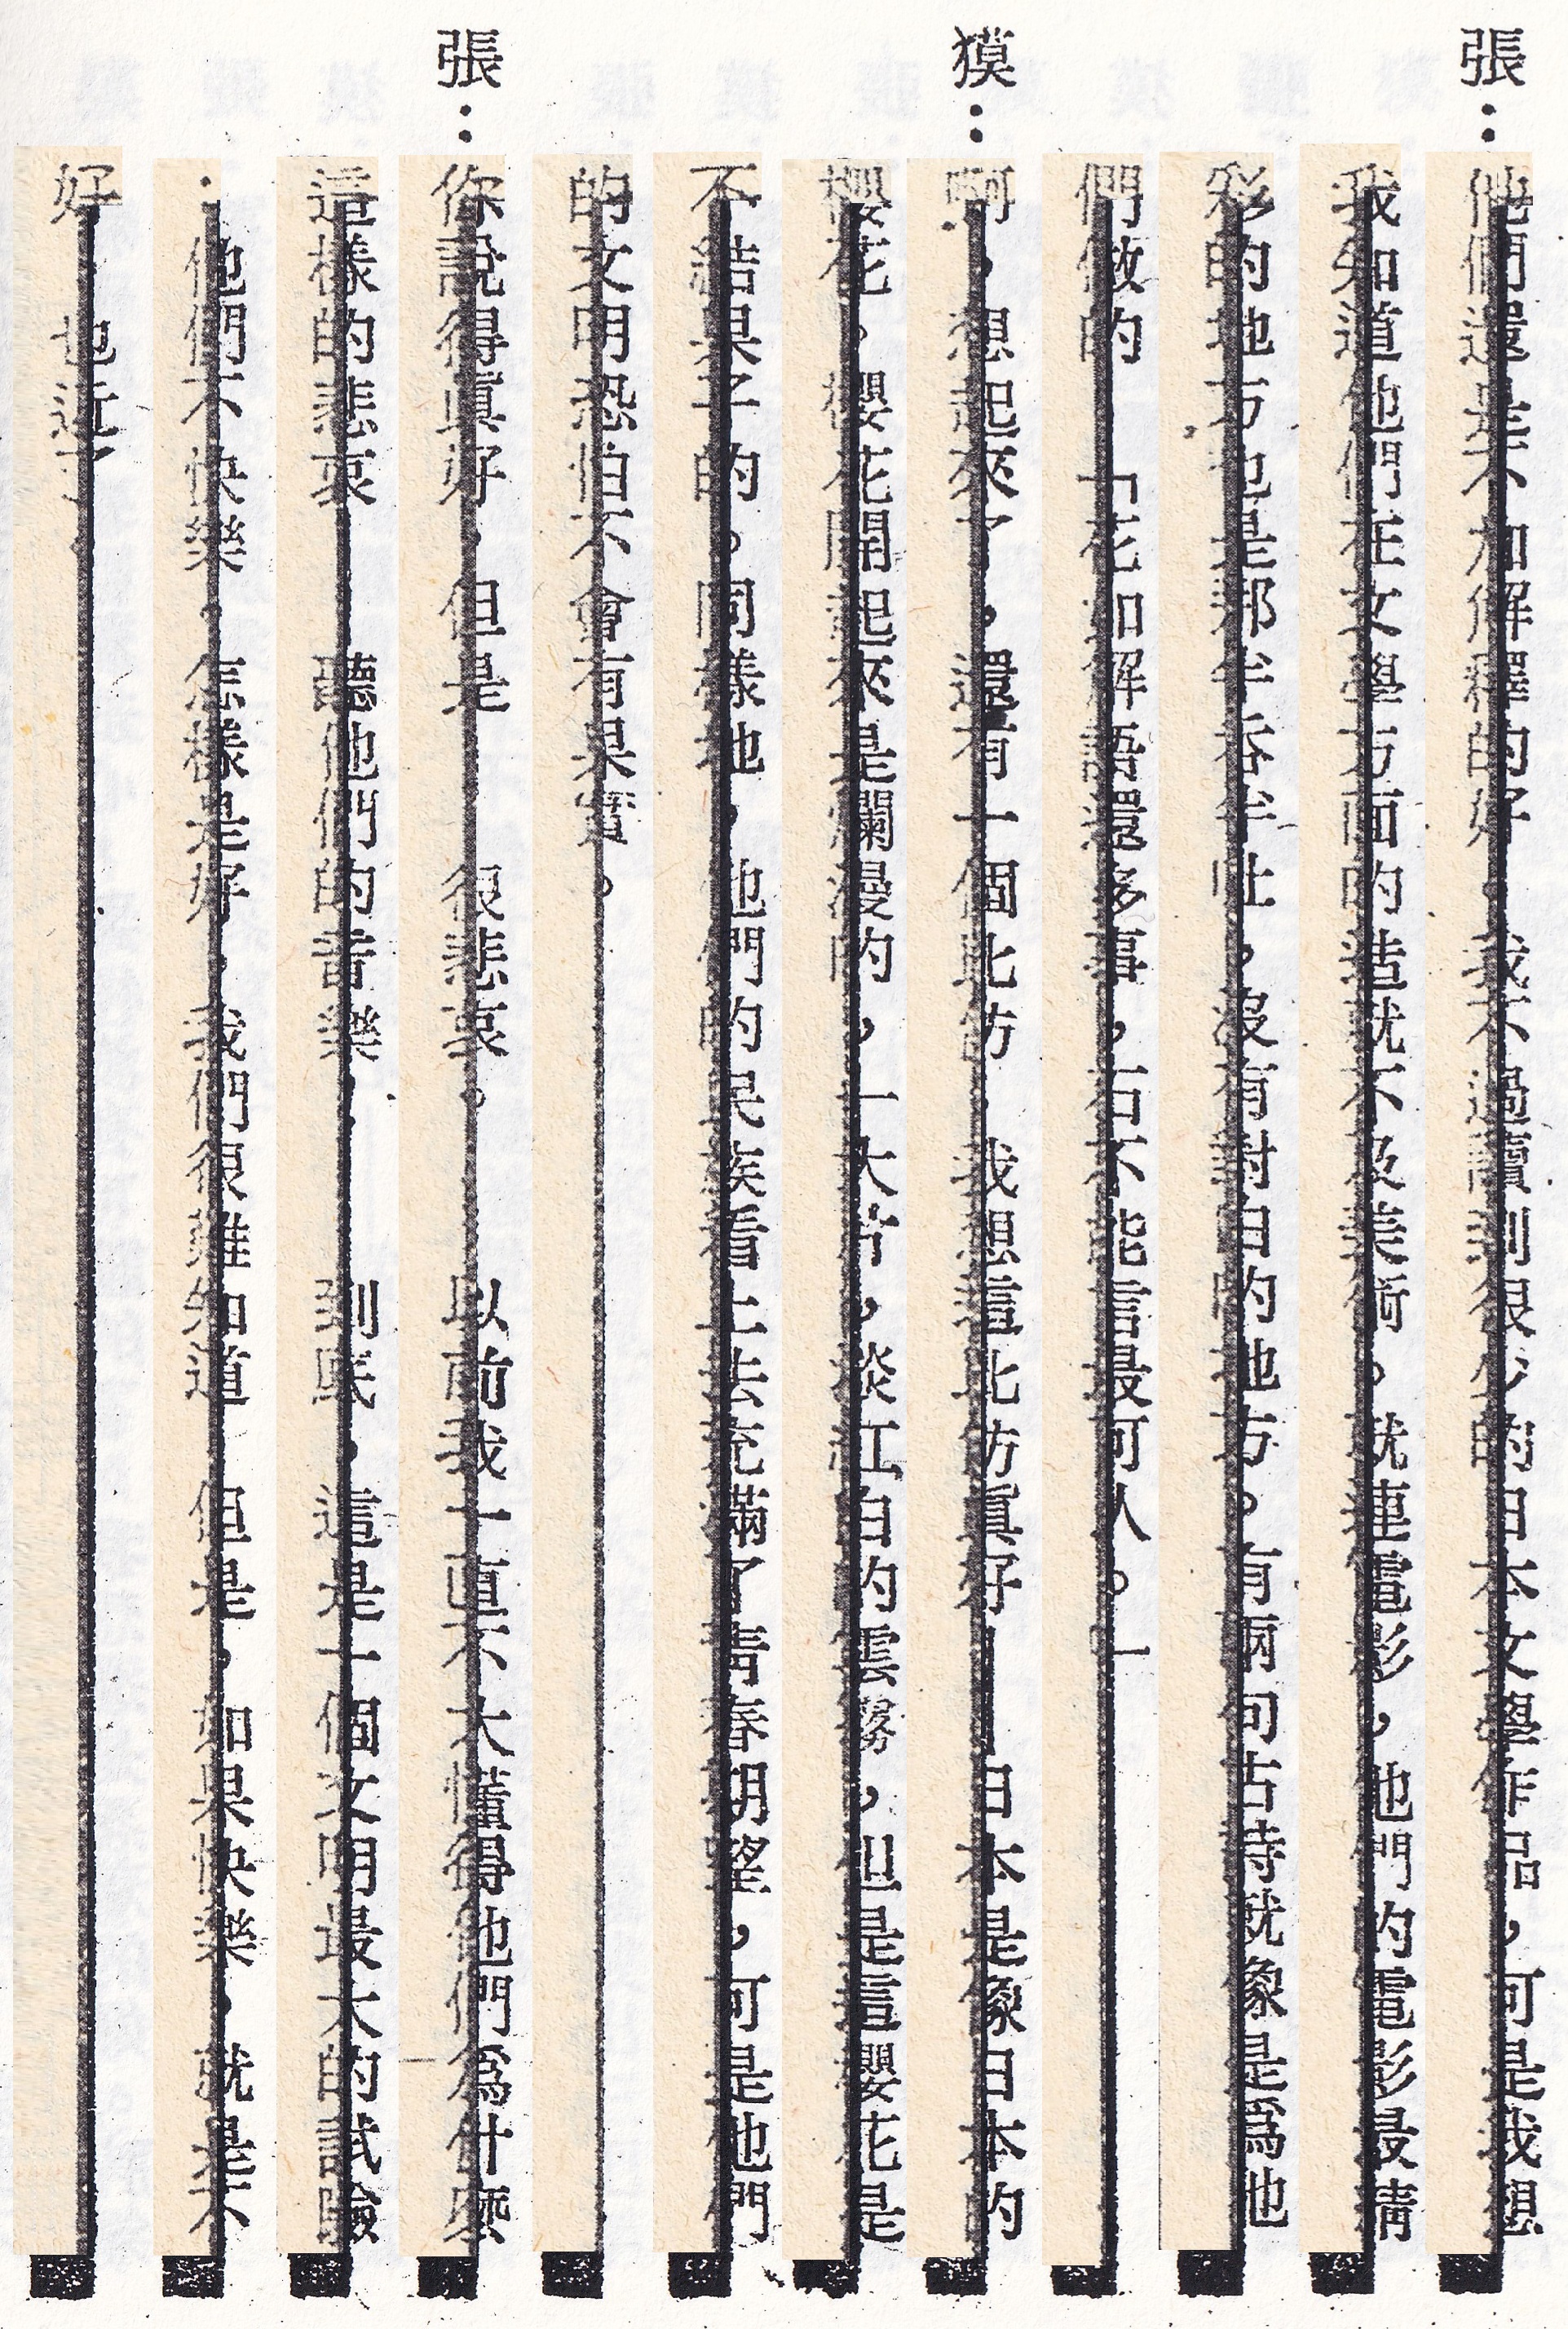 張：他們還是不加解釋的好。我不過讀到很少的日本文學作品，可是我想
我知道他們在文學方面的造就不及美術。就連電影，他們的電影最精
彩的地方也是那半吞半吐，沒有對白的地方。有兩句古詩就像是爲他
們做的——「花如解語還多事，石不能言最可人。」
獏：啊，想起來了。還有一個比仿。我想這比仿眞好——日本是像日本的
櫻花。櫻花開起來是瀾漫的，一大片，淡紅白的雲霧，但是這櫻花是
不結果子的。同樣地，他們的民族看上去充滿了靑春期望，可是他們
的文明恐怕不會有果實。
張：你說得眞好，但是——很悲哀。——以前我一直不大懂得他們爲什麼
這樣的悲哀——聽他們的音樂，——到底，這是一個文明最大的試驗
：他們不快樂。怎樣是好，我們很難知道。但是，如果快樂，就是不
好，也近了。